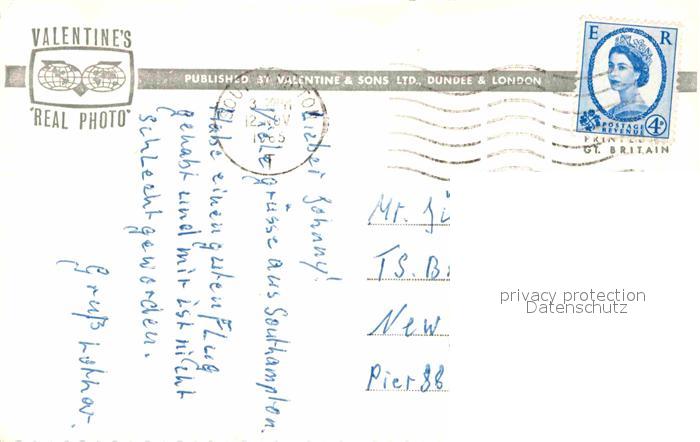 VALENTINE'S
"REAL PHOTO"
PUBLISHED BY VALENTINE & SONS LTD., DUNDEE & LONDON
E R
POSTAGE
REVENUE
4D
PRINTED
GT. BRITAIN
Lieber Johnny!
Viele grüsse aus Southampton.
Habe einen guten Flug
gehabt und mir ist nicht
schlecht geworden.
Gruß Lothar.
Mr.
T.S.
New
Pier 88
privacy protection
Datenschutz